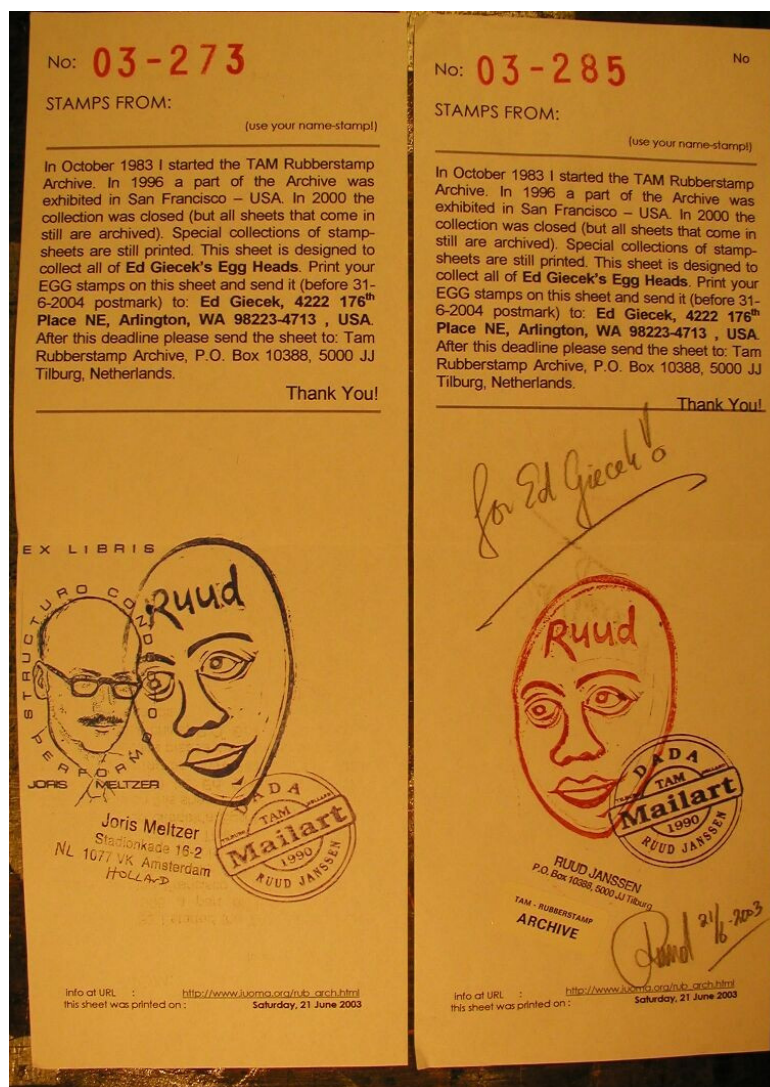 No: 03-273
STAMPS FROM:
(use your name-stamp!)
In October 1983 I started the TAM Rubberstamp
Archive. In 1996 a part of the Archive was
exhibited in San Francisco – USA. In 2000 the
collection was closed (but all sheets that come in
still are archived). Special collections of stamp-
sheets are still printed. This sheet is designed to
collect all of Ed Giecek's Egg Heads. Print your
EGG stamps on this sheet and send it (before 31-
6-2004 postmark) to: Ed Giecek, 4222 176th
Place NE, Arlington, WA 98223-4713 , USA.
After this deadline please send the sheet to: Tam
Rubberstamp Archive, P.O. Box 10388, 5000 JJ
Tilburg, Netherlands.
Thank You!
EX LIBRIS
STRUCTURO CONDESTIO PERFORMO
JORIS MELTZER
Ruud
Joris Meltzer
Stadionkade 16-2
NL 1077 VK Amsterdam
HOLLAND
DADA
TAM
Mailart
1990
RUUD JANSSEN
Info at URL : http://www.iuoma.org/rub_arch.html
this sheet was printed on : Saturday, 21 June 2003
No
No: 03-285
STAMPS FROM:
(use your name-stamp!)
In October 1983 I started the TAM Rubberstamp
Archive. In 1996 a part of the Archive was
exhibited in San Francisco – USA. In 2000 the
collection was closed (but all sheets that come in
still are archived). Special collections of stamp-
sheets are still printed. This sheet is designed to
collect all of Ed Giecek's Egg Heads. Print your
EGG stamps on this sheet and send it (before 31-
6-2004 postmark) to: Ed Giecek, 4222 176th
Place NE, Arlington, WA 98223-4713 , USA.
After this deadline please send the sheet to: Tam
Rubberstamp Archive, P.O. Box 10388, 5000 JJ
Tilburg, Netherlands.
Thank You!
for Ed Giecek!
Ruud
DADA
TAM
Mailart
1990
RUUD JANSSEN
RUUD JANSSEN
P.O. Box 10388, 5000 JJ Tilburg
TAM - RUBBERSTAMP
ARCHIVE
Ruud 21/6-2003
Info at URL : http://www.iuoma.org/rub_arch.html
this sheet was printed on : Saturday, 21 June 2003